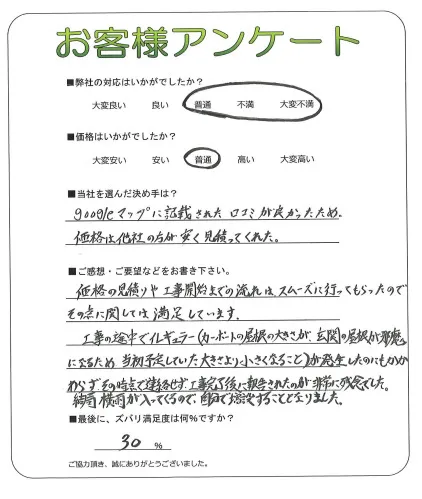 お客様アンケート
■弊社の対応はいかがでしたか？
大変良い 良い 普通 不満 大変不満
■価格はいかがでしたか？
大変安い 安い 普通 高い 大変高い
■当社を選んだ決め手は？
googleマップに記載された口コミが良かったため。
価格は他社の方が安く見積ってくれた。
■ご感想・ご要望などをお書き下さい。
価格の見積りや工事開始までの流れは、スムーズに行ってもらったので
その点に関しては満足しています。
工事の途中でイレギュラー(カーポートの屋根の大きさが、玄関の屋根が邪魔
になるため、当初予定していた大きさより小さくなること)が発生したのにもかか
わらずその時点で連絡せず工事完了後に報告されたのが非常に残念でした。
結局横雨が入ってくるので、することとなりました。
■最後に、ズバリ満足度は何％ですか？
30 %
ご協力頂き、誠にありがとうございました。